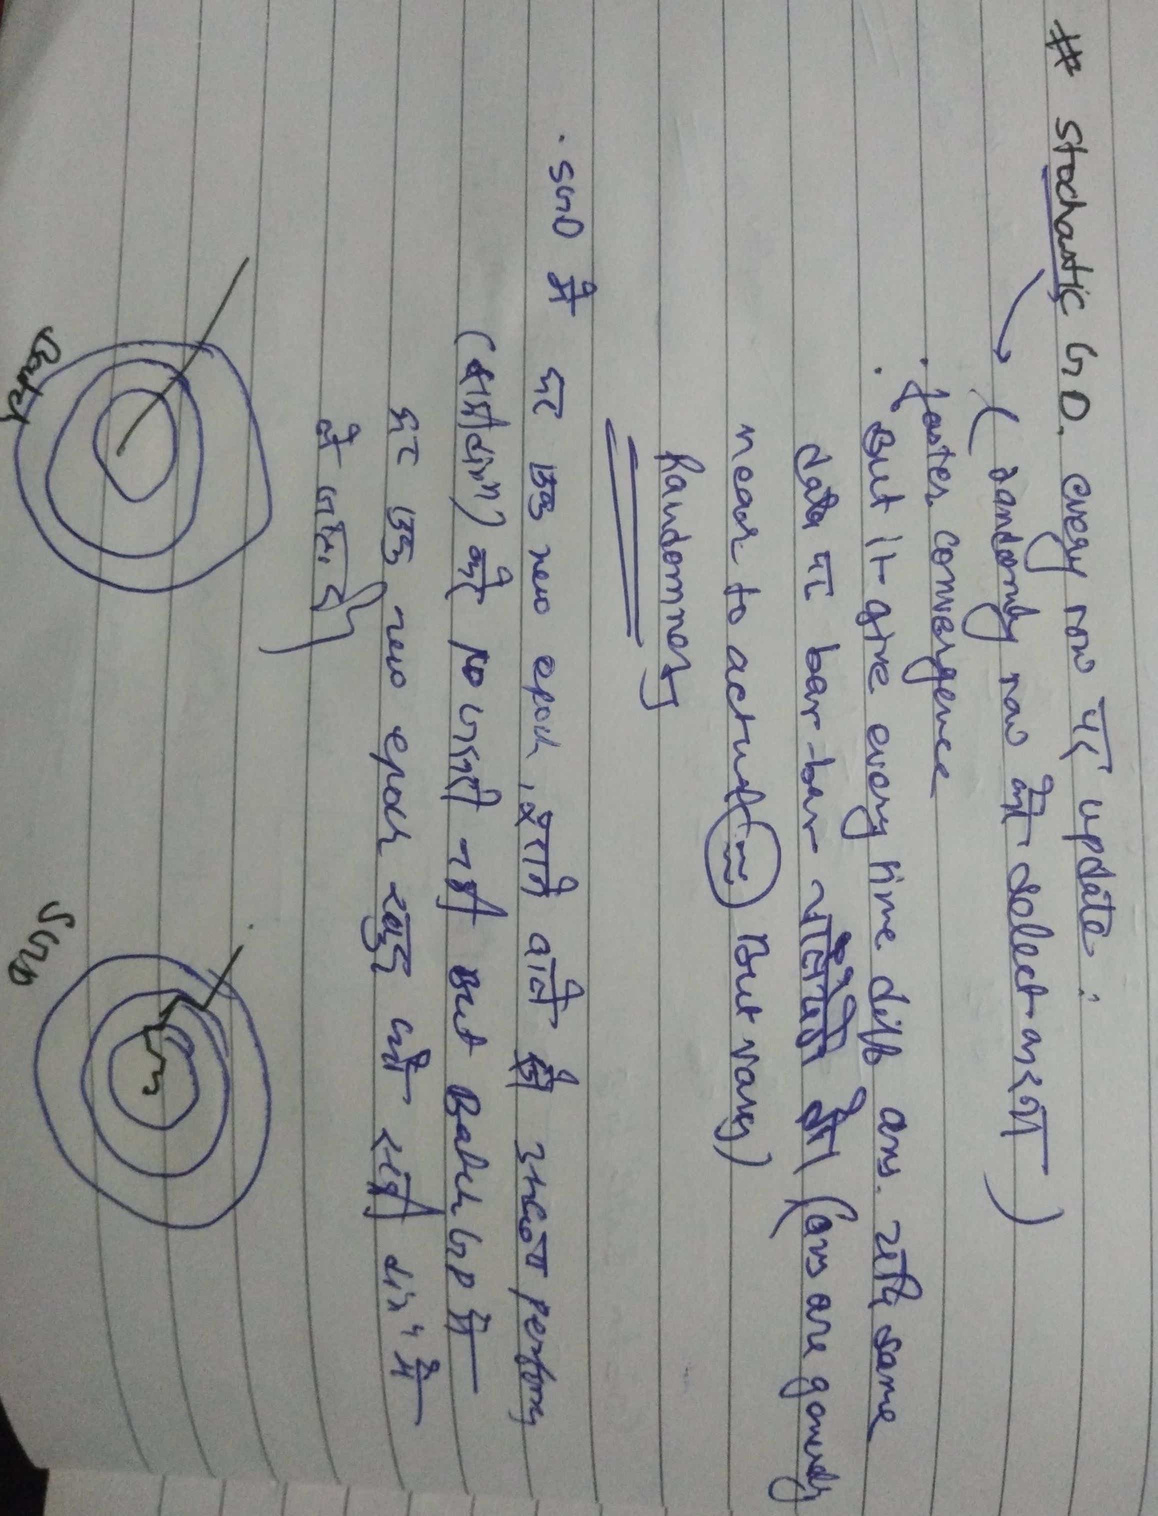 # Stochastic GD. every row पर update :
( randomly row को select करना )
. faster convergence
. But it give every time diff ans. यदि same
data पर bar-bar चलायेंगे तो (ans are generaly
near to actual ≈ But vary)
Randomness
. SGD में हर एक new epoch, हमेशा अच्छा perform
करे जरूरी नहीं But Batch GD में
हर एक new epoch सही dirn में
Batch
SGD